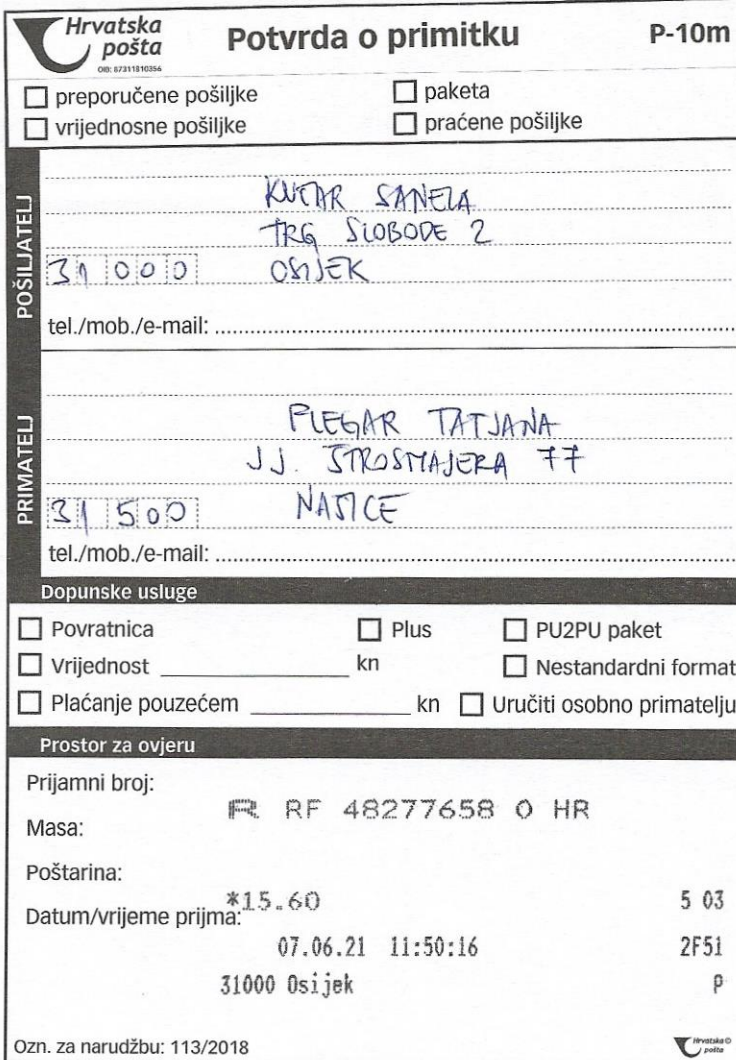 Hrvatska pošta
OIB: 87311810356
Potvrda o primitku
P-10m
preporučene pošiljke
paketa
vrijednosne pošiljke
praćene pošiljke
POŠILJATELJ
KUTAR SANELA
TRG SLOBODE 2
31000 OSIJEK
tel./mob./e-mail:
PRIMATELJ
PLEGAR TATJANA
J.J. STROSMAJERA 77
31500 NAŠICE
tel./mob./e-mail:
Dopunske usluge
Povratnica
Plus
PU2PU paket
Vrijednost kn
Nestandardni format
Plaćanje pouzećem kn
Uručiti osobno primatelju
Prostor za ovjeru
Prijamni broj:
R RF 48277658 0 HR
Masa:
Poštarina:
*15.60 5 03
Datum/vrijeme prijma:
07.06.21 11:50:16 2F51
31000 Osijek P
Ozn. za narudžbu: 113/2018
Hrvatska pošta